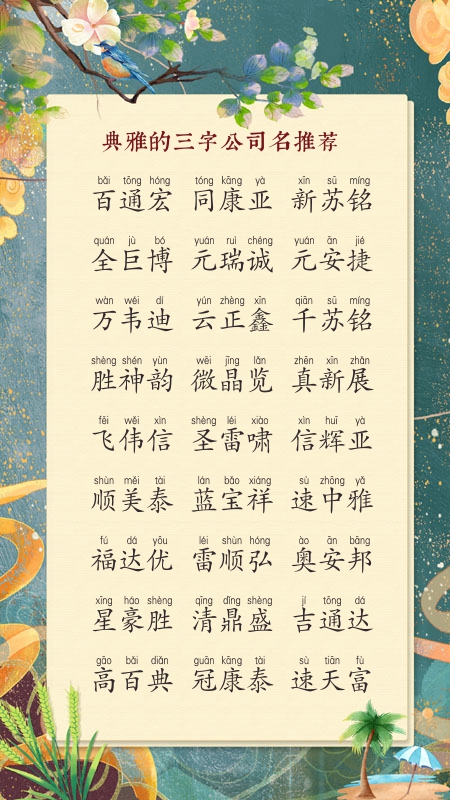 典雅的三字公司名推荐
bǎi tōng hóng tóng kāng yà xīn sū míng
百通宏 同康亚 新苏铭
quán jù bó yuán ruì chéng yuán ān jié
全巨博 元瑞诚 元安捷
wàn wéi dí yún zhèng xīn qiān sū míng
万韦迪 云正鑫 千苏铭
shèng shén yùn wēi jīng lǎn zhēn xīn zhǎn
胜神韵 微晶览 真新展
fēi wěi xìn shèng léi xiào xìn huī yà
飞伟信 圣雷啸 信辉亚
shùn měi tài lán bǎo xiáng sù zhōng yǎ
顺美泰 蓝宝祥 速中雅
fú dá yōu léi shùn hóng ào ān bāng
福达优 雷顺弘 奥安邦
xīng háo shèng qīng dǐng shèng jí tōng dá
星豪胜 清鼎盛 吉通达
gāo bǎi diǎn guān kāng tài sù tiān fù
高百典 冠康泰 速天富